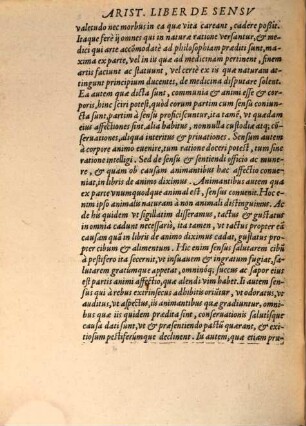 ARIST. LIBER DE SENSV
valetudo nec morbus in ea quæ vita careant, cadere poßit.
Itaque ferè ij omnes qui in naturæ ratione versantur, & me-
dici qui arte accõmodatè ad philosophiam præditi sunt, maxima
ex parte, vel in iis quæ ad medicinam pertinent, finem
artis faciunt ac statuunt, vel certè ex iis quæ naturam at-
tingunt principium ducentes, de medicina disputare solent.
Ea autem quæ dicta sunt, communia & animi esse & cor-
poris, hinc sciri potest, quòd eorum partim cum sensu coniun-
cta sunt, partim à sensu proficiscuntur, ita tamẽ, vt quædam
eius affectiones sint, alia habitus, nonnulla custodiæ atq; cõser-
uationes, aliqua interitus & priuationes. Sensum autem
à corpore animo euenire, tum ratione doceri potest, tum sine
ratione intelligi. Sed de sensu & sentiendi officio ac mune-
re, & quam ob causam animantibus hæc affectio conue-
niat, in libris de animo diximus. Animantibus autem qua
ex parte vnumquodque animal est, sensus conuenit. Hoc e-
nim ipso animal naturam à non animali distinguimus. Ac
de his quidem vt sigillatim disseramus, tactus & gustatus
in omnia cadunt necessariò, ita tamen, vt tactus propter eã
causam quã in libris de animo diximus cadat, gustus pro-
pter cibum & alimentum. Hic enim sensus salutarem cibũ
à pestifero ita secernit, vt insuauem & ingratum fugiat, sa-
lutarem gratúmque appetat, omninoq; succus ac sapor eius
est partis animi affectio, quæ alendi vim habet. Ii autem sen-
sus qui à rebus extrinsecus adhibitis oriũtur, vt odoratus, vt
auditus, vt aspectus, iis animantibus quæ gradiuntur, omni-
bus quæ iis quidem prædita sint, conseruationis salutísque
causa dati sunt, vt & præsentiendo pastũ quærant, & exi-
tiosum pestiferúmque declinent. Iis autem, quæ etiam pru-